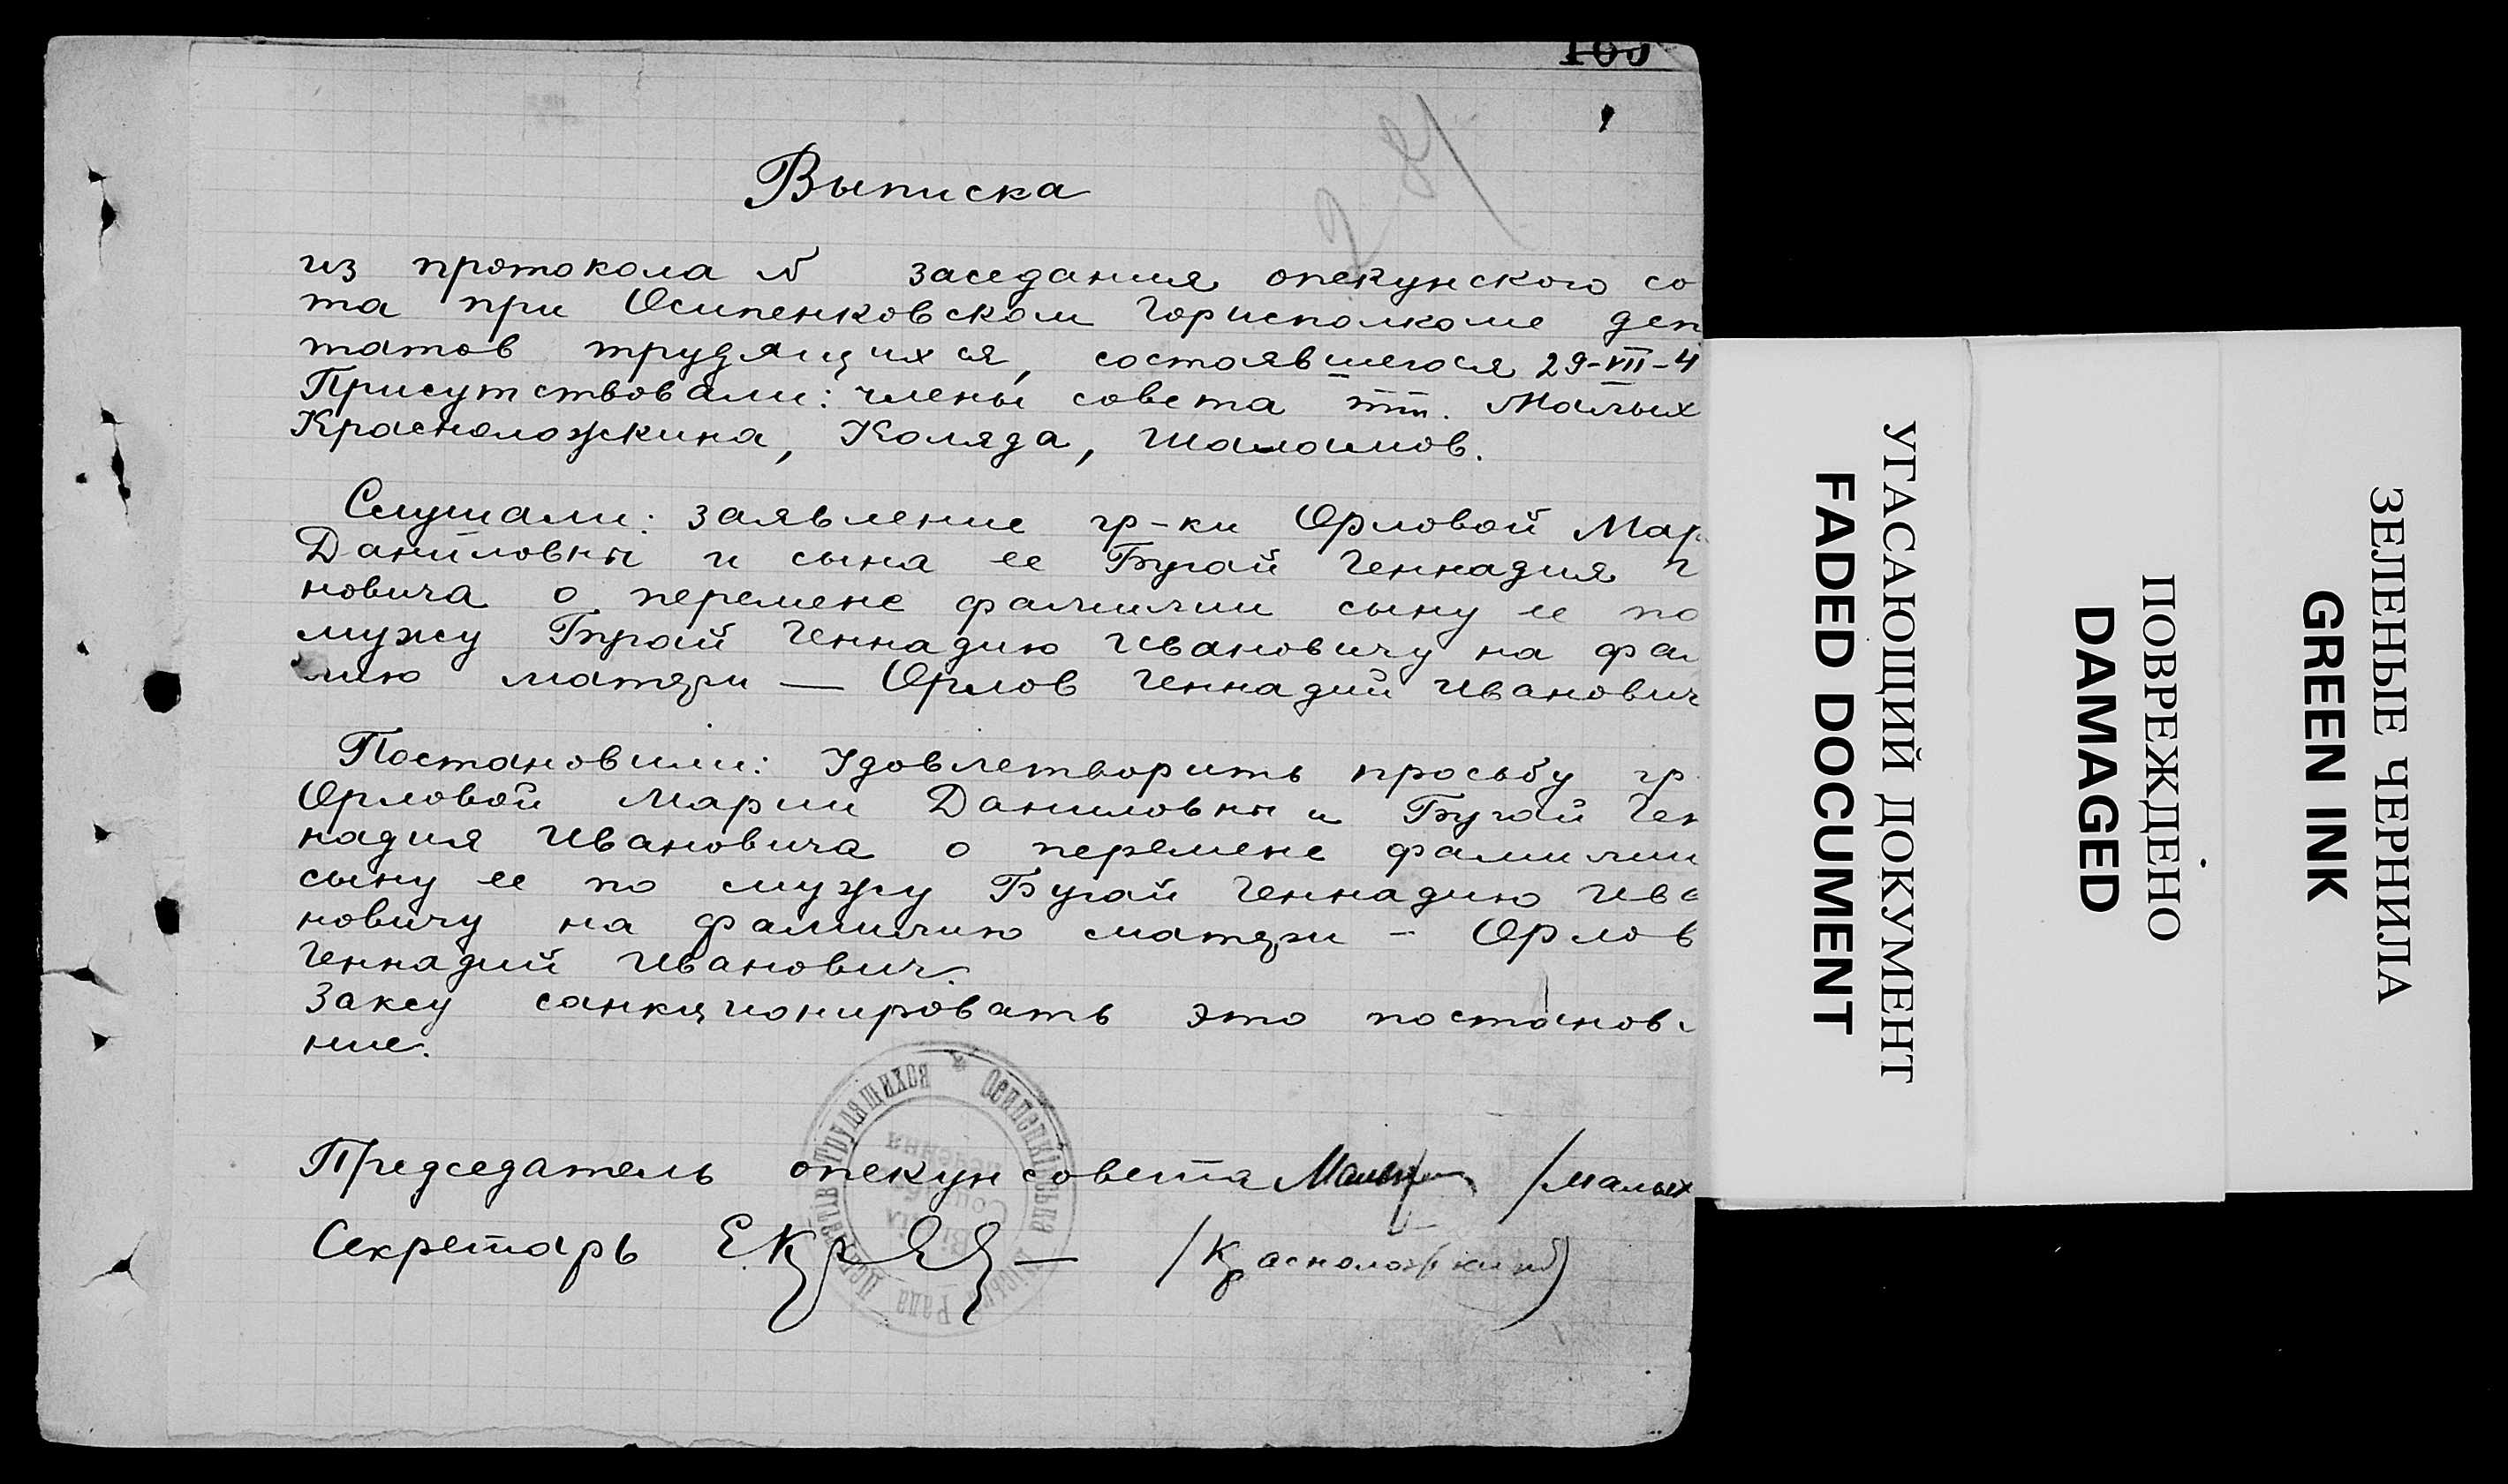 Выписка
из протокола № заседания опекунского со
та при Осипенковском Горисполкоме деп
татов трудящихся, состоявшегося 29-VII-4
Присутствовали: члены совета тт. Малых
Красноложкина, Коляда, Шаламов.
Слушали: заявление гр-ки Орловой Мар
Даниловны и сына ее Бугай Геннадия
новича о перемене фамилии сыну ее по
мужу Бугай Геннадию Ивановичу на фа
лию матери — Орлов Геннадий Иванович
Постановили: Удовлетворить просьбу гр
Орловой Марии Даниловны и Бугай Ген
надия Ивановича о перемене фамилии
сыну ее по мужу Бугай Геннадию Ива
новичу на фамилию матери - Орлов
Геннадий Иванович.
Заксу санкционировать это постанов
ние.
Председатель опекунсовета /Малых
Секретарь /Красноложкина)
Осипенківська Міська Рада Депутатів Трудящихся
УГАСАЮЩИЙ ДОКУМЕНТ
FADED DOCUMENT
ПОВРЕЖДЕНО
DAMAGED
ЗЕЛЕНЫЕ ЧЕРНИЛА
GREEN INK